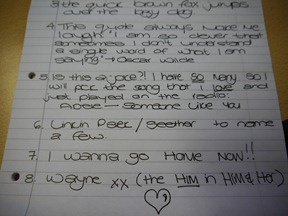 3. the quick brown fox jumps
over the lazy dog
4. This quote always make me
laugh 'I am so clever that
sometimes I don't understand
a single word of what I am
saying' - Oscar Wilde
5. Is this a joke?! I have SO many, so I
will pick the song that I love and
just played on the radio:
Adele - Someone Like You
6. Linkin Park / Seether to name
a few.
7. I wanna go HOME NOW!!
8. Wayne xx (the HIM in HIM & Her)